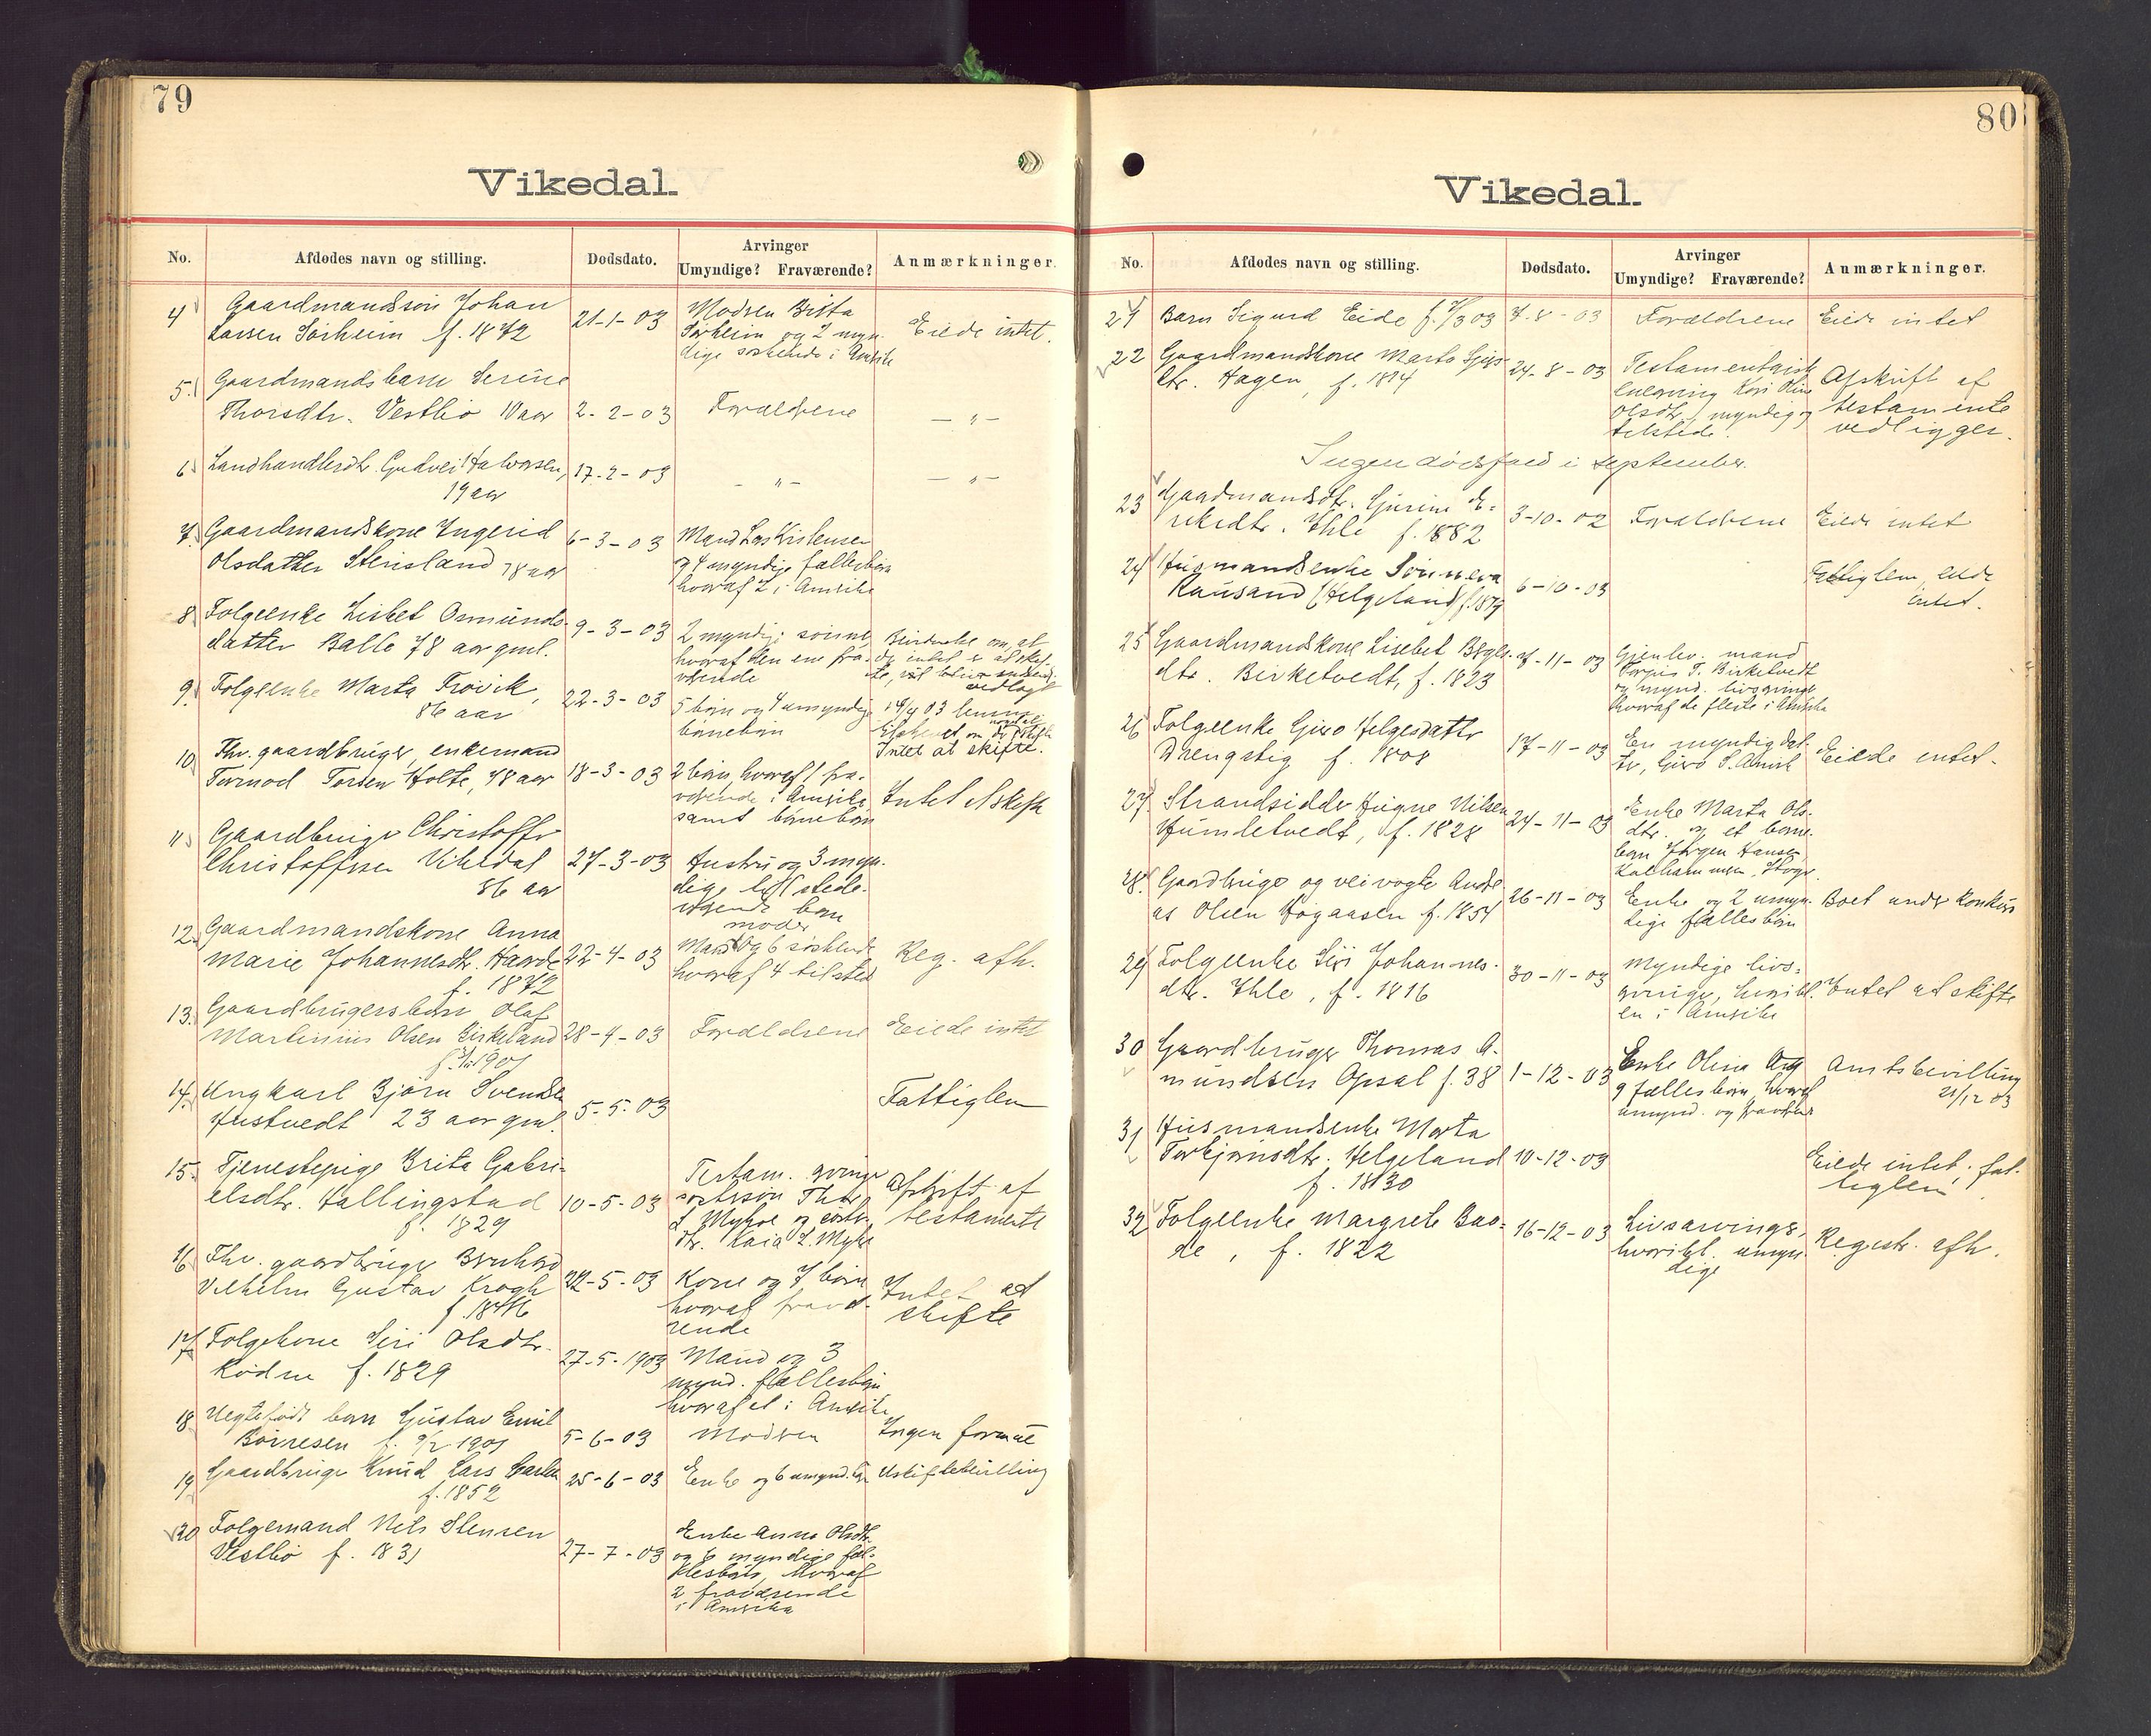 79
Vikedal.
No. Afdødes navn og stilling. Dødsdato. Arvinger Umyndige? Fraværende? Anmærkninger.
4 Gaardmandssøn Johan
Larsen Sørheim f. 1872 21-1-03 Modren Brita
Sørheim og 2 myn-
dige søskende i Amrika Eiede intet.
5. Gaardmandsbarn Serine
Thorsdtr. Vestbø 10 aar 2-2-03 Forældrene — " —
6 Landhandlerdtr. Gudvei Halvorsen,
19 aar 17-2-03 — " — — " —
7. Gaardmandskone Ingerid
Olsdatter Stensland 78 aar 6-3-03 Mand Lars Kristensen
og 4 myndige fællesbørn
hvoraf 2 i Amrika
8. Folgeenke Lisbet Osmunds-
datter Balle 78 aar gml. 9-3-03 2 myndige sønner,
hvoraf den ene fra-
værende
9. Folgeenke Marta Frøvik,
86 aar 22-3-03 5 børn og 4 umyndige
børnebørn
Intet at skifte.
10. Fhv. gaardbruger, enkemand
Tormod Torsen Holte, 78 aar 18-3-03 2 børn, hvoraf 1 fra-
værende i Amrika
samt børnebørn Intet at skifte
11. Gaardbruger Christoffer
Christoffersen Vikedal
86 aar 27-3-03 Hustru og 3 myn-
dige tilstede-
værende børn
12. Gaardmandskone Anna
Marie Johannesdtr. Haarde
f. 1872 22-4-03 moder
Mand og 6 søskende
hvoraf 4 tilsted Reg. afh.
13. Gaardbrugersbarn Olaf
Martinius Olsen Birkeland
1901 28-4-03 Forældrene Eiede intet
14. Ungkarl Bjørn Svendsen
Hustvedt 23 aar gml. 5-5-03 Fattiglem
15. Tjenestepige Brita Gabri-
elsdtr. Hallingstad
f. 1829 10-5-03 Testam. arvinger
søstersøn
L. Myhre og søster-
dtr. Kaia L. Myhre Afskrift af
testamente
16. Fhv. gaardbruger Bernhard
Vilhelm Gustav Krogh
f. 1846 22-5-03 Kone og 7 børn
hvoraf fravæ-
rende Intet at
skifte
17. Folgekone Siri Olsdtr.
Rødne f. 1829 27-5-1903 Mand og 3
mynd. fællesbørn
hvoraf et i Amrika
18. Uegtefødt barn Gustav Emil
Børresen f. 9/2 1901 5-6-03 Modren Ingen formue
19. Gaardbruger Knud Lars
f. 1852 25-6-03 Enke og 6 umynd. Uskiftebevilling
20 Folgemand Nels Stensen
Vestbø f. 1831 27-7-03 Enke Anna Olsdtr.
og 6 myndige fæl-
lesbørn, hvoraf
2 fraværende
i Amrika
80
Vikedal.
No. Afdødes navn og stilling. Dødsdato. Arvinger Umyndige? Fraværende? Anmærkninger.
21 Barn Sigurd Eide 7-8-03 Forældrene Eiede intet
22 Gaardmandskone Marta
dtr. Hagen, f. 1814 24-8-03 Testamentarisk
Kari Oline
Olsdtr., myndig og
tilstede. Afskrift af
testamente
vedligger.
Ingen dødsfald i september.
23 Gaardmandsdtr. Gurine E-
riksdtr. Ihle f. 1882 3-10-02 Forældrene Eiede intet
24 Husmandsenke Sønneva
Rausand (Helgeland) 6-10-03 Fattiglem, eiede
intet.
25 Gaardmandskone Lisebet
dtr. Birketvedt, f. 1823 7-11-03 Gjenlev. mand
T. Birketvedt
og mynd. livsarvinger
hvoraf de fleste i Amrika
26 Folgeenke Giro Helgesdatter
Drengstig f. 1808 17-11-03 En myndig dat-
ter, Giro Eiede intet.
27 Strandsidder Hugne Nilsen
Humletvedt, f. 1828 24-11-03 Enke Marta Ols-
dtr. og et barne-
barn Jørgen Hansen,
28. Gaardbruger og veivogter Andre-
as Olsen Høgaasen f. 1854 26-11-03 Enke og 2 umyn-
dige fællesbørn Boet under konkurs
29 Folgeenke Siri Johannes-
dtr. Ihle, f. 1816 30-11-03 Myndige livs-
arvinger,
en i Amrika Intet at skifte
30 Gaardbruger Thomas A-
mundsen Opsal f. 38 1-12-03 Enke Olina og
9 fællesbørn, hvoraf
umynd. og fravær. Amtsbevilling
21/12 03
31 Husmandsenke Marta
Torbjørnsdtr. Helgeland
f. 1830 10-12-03 Eiede intet, fat-
tiglem
32 Folgeenke Margrete Bao-
de, f. 1822 16-12-03 Livsarvinger,
hvoribl. umyn-
dige Registr. afh.